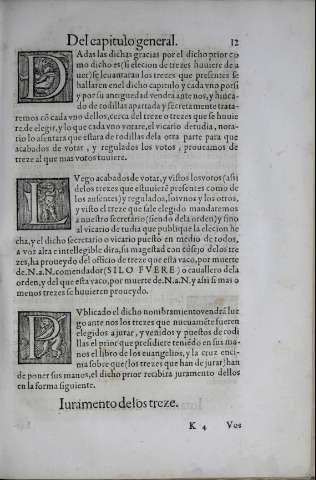 Del capitulo general. 12
DAdas las dichas gracias por el dicho prior co
mo dicho es (si elecion de trezes huuiere de a
uer) se leuantaran los trezes que presentes se
hallaren en el dicho capitulo y cada vno por si
y por su antiguedad vendra ante nos, y hinca-
do de rodillas apartada y secretamente trata-
remos cõ cada vno dellos, cerca del treze o trezes que se huuie
re, de elegir, y lo que cada vno votare, el vicario de tudia, nota-
rio lo asentara que estara de rodillas dela otra parte para que
acabados de votar, y regulados los votos, proueamos de
treze al que mas votos tuuiere.
LVego acabados de votar, y vistos los votos (assi
delos trezes que estuuierẽ presentes como de
los ausentes) y regulados, los vnos y los otros,
y visto el treze que sale elegido mandaremos
a nuestro secretario (siendo dela orden) y sino
al vicario de tudia que publique la elecion he
cha, y el dicho secretario o vicario puesto en medio de todos,
a voz alta e intellegible dira, su magestad con cõsejo delos tre
zes, ha proueydo del officio de treze que esta vaco, por muerte
de .N. a .N. comendador (SI LO FVERE) o cauallero dela
orden, y del que esta vaco, por muerte de .N. a .N. y assi si mas o
menos trezes se huuieren proueydo.
PVblicado el dicho nombramiento vendrã lue
go ante nos los trezes que nueuamẽte fueren
elegidos a jurar, y venidos y puestos de rodi
llas el prior que presidiere teniẽdo en sus ma-
nos el libro de los euangelios, y la cruz enci-
ma sobre que (los trezes que han de jurar) han
de poner sus manos, el dicho prior recibira juramento dellos
en la forma siguiente.
Iuramento de los treze.
K 4 Vos